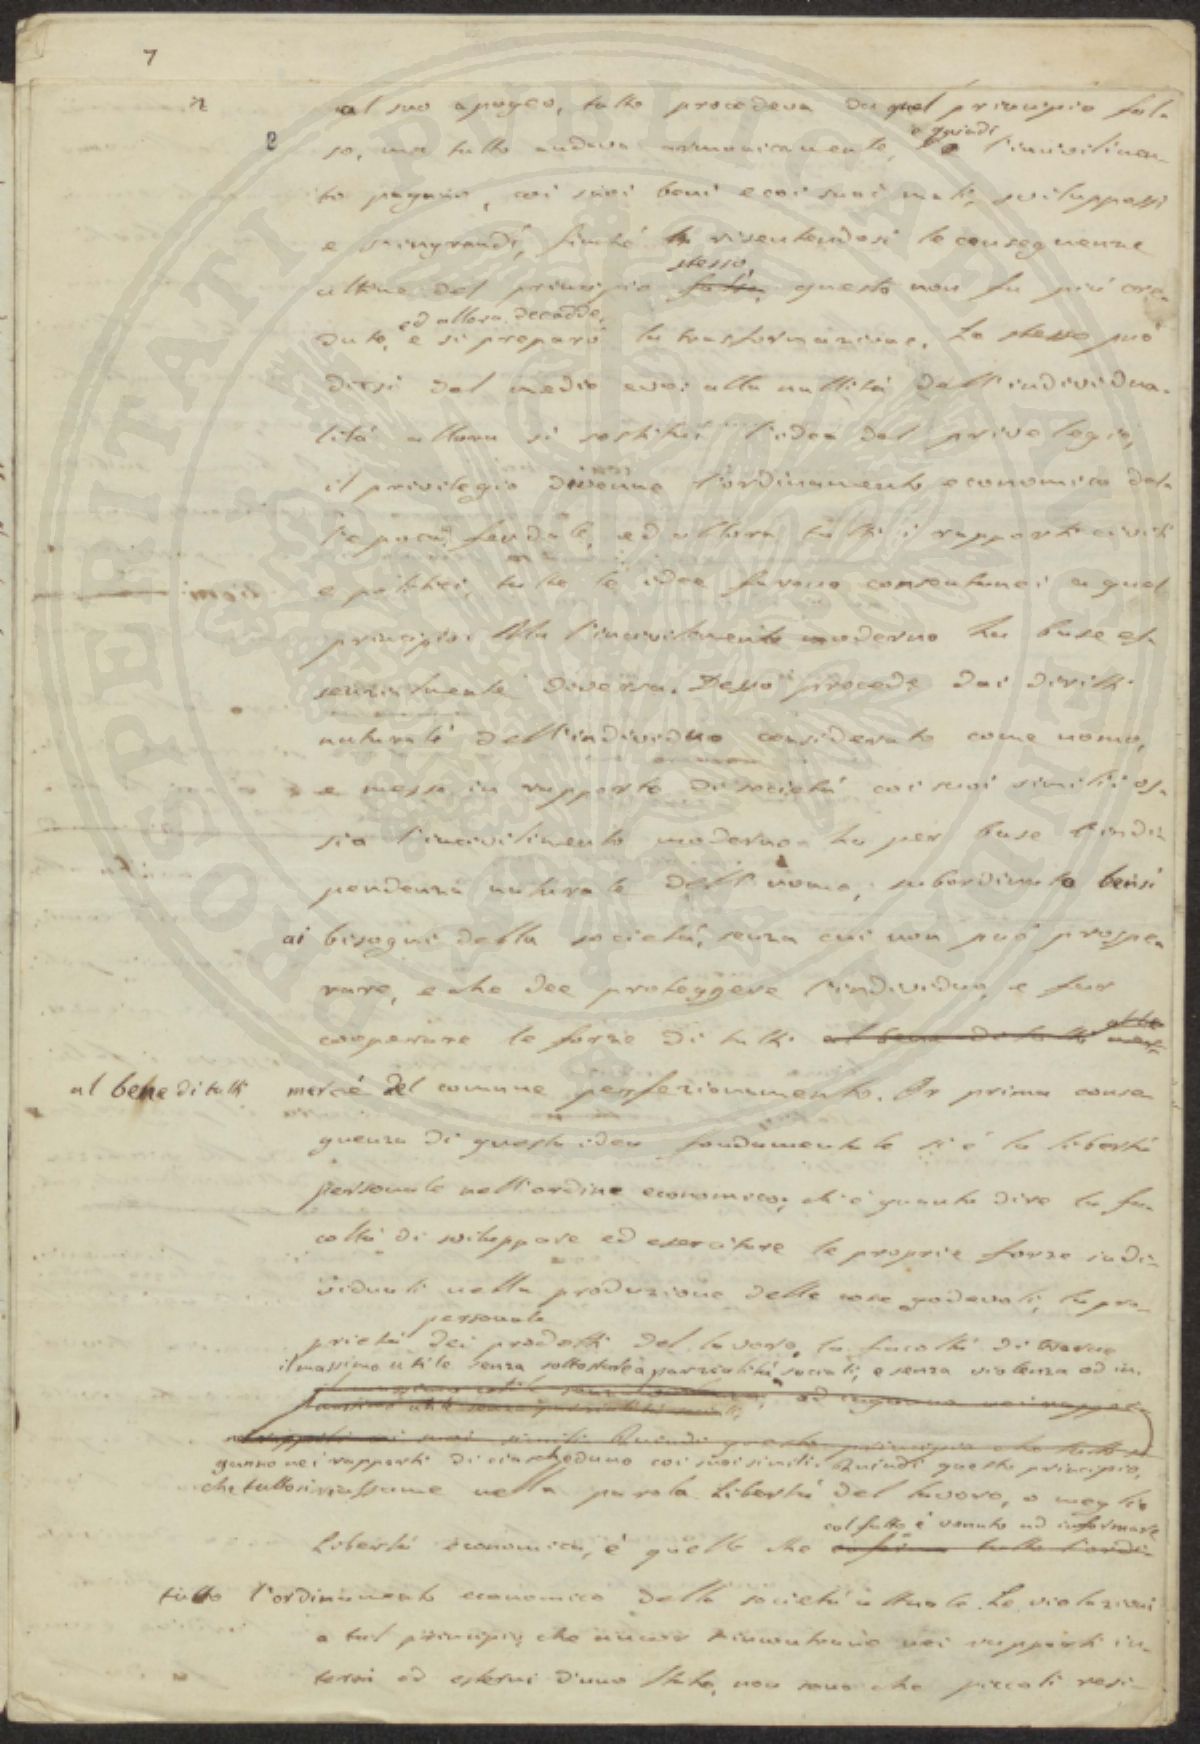 7
al suo apogeo, tutto procedeva da quel principio fal-
so, ma tutto andava armonicamente, e quindi l'incivilimen-
to pagano, coi suoi beni e coi suoi mali, sviluppossi
e s'ingrandì, finché risentendosi le conseguenze
ultime del principio stesso, questo non fu più cre-
duto, ed allora decadde, e si preparò la trasformazione. Lo stesso può
dirsi del medio evo: alla nullità dell'individua-
lità allora si sostituì l'idea del privilegio,
il privilegio divenne l'ordinamento economico del-
l'epoca feudale, ed allora tutti i rapporti civili
e politici, tutte le idee furono consentanei a quel
principio. Ma l'incivilimento moderno ha base es-
senzialmente diversa. Desso procede dai diritti
naturali dell'individuo considerato come uomo,
e messo in rapporto di società coi suoi simili: os-
sia l'incivilimento moderno ha per base l'indi-
pendenza naturale dell'uomo, subordinata bensì
ai bisogni della società, senza cui non può prospe-
rare, e che dee proteggere l'individuo, e far
cooperare le forze di tutti al bene di tutti
al bene di tutti mercé del comune perfezionamento. Or prima conse-
guenza di questa idea fondamentale si è la libertà
personale nell'ordine economico, ch'è quanto dire la fa-
coltà di sviluppare ed esercitare le proprie forze indi-
viduali nella produzione delle cose godevoli, la pro-
prietà personale dei prodotti del lavoro, la facoltà di trarne
il massimo utile senza sottostare a parzialità sociali, e senza violenza od in-
ganno nei rapporti di ciascheduno coi suoi simili. Quindi questo principio,
che tutto si riassume nella parola Libertà del lavoro, o meglio
Libertà economica, è quello che col fatto è venuto ad informare
tutto l'ordinamento economico della società attuale. Le violazioni
a tal principio, che ancor rinvengonsi nei rapporti in-
terni ed esterni d'uno Stato, non sono che piccoli resi-
PROSPERITATI PUBLICAE AUGENDAE